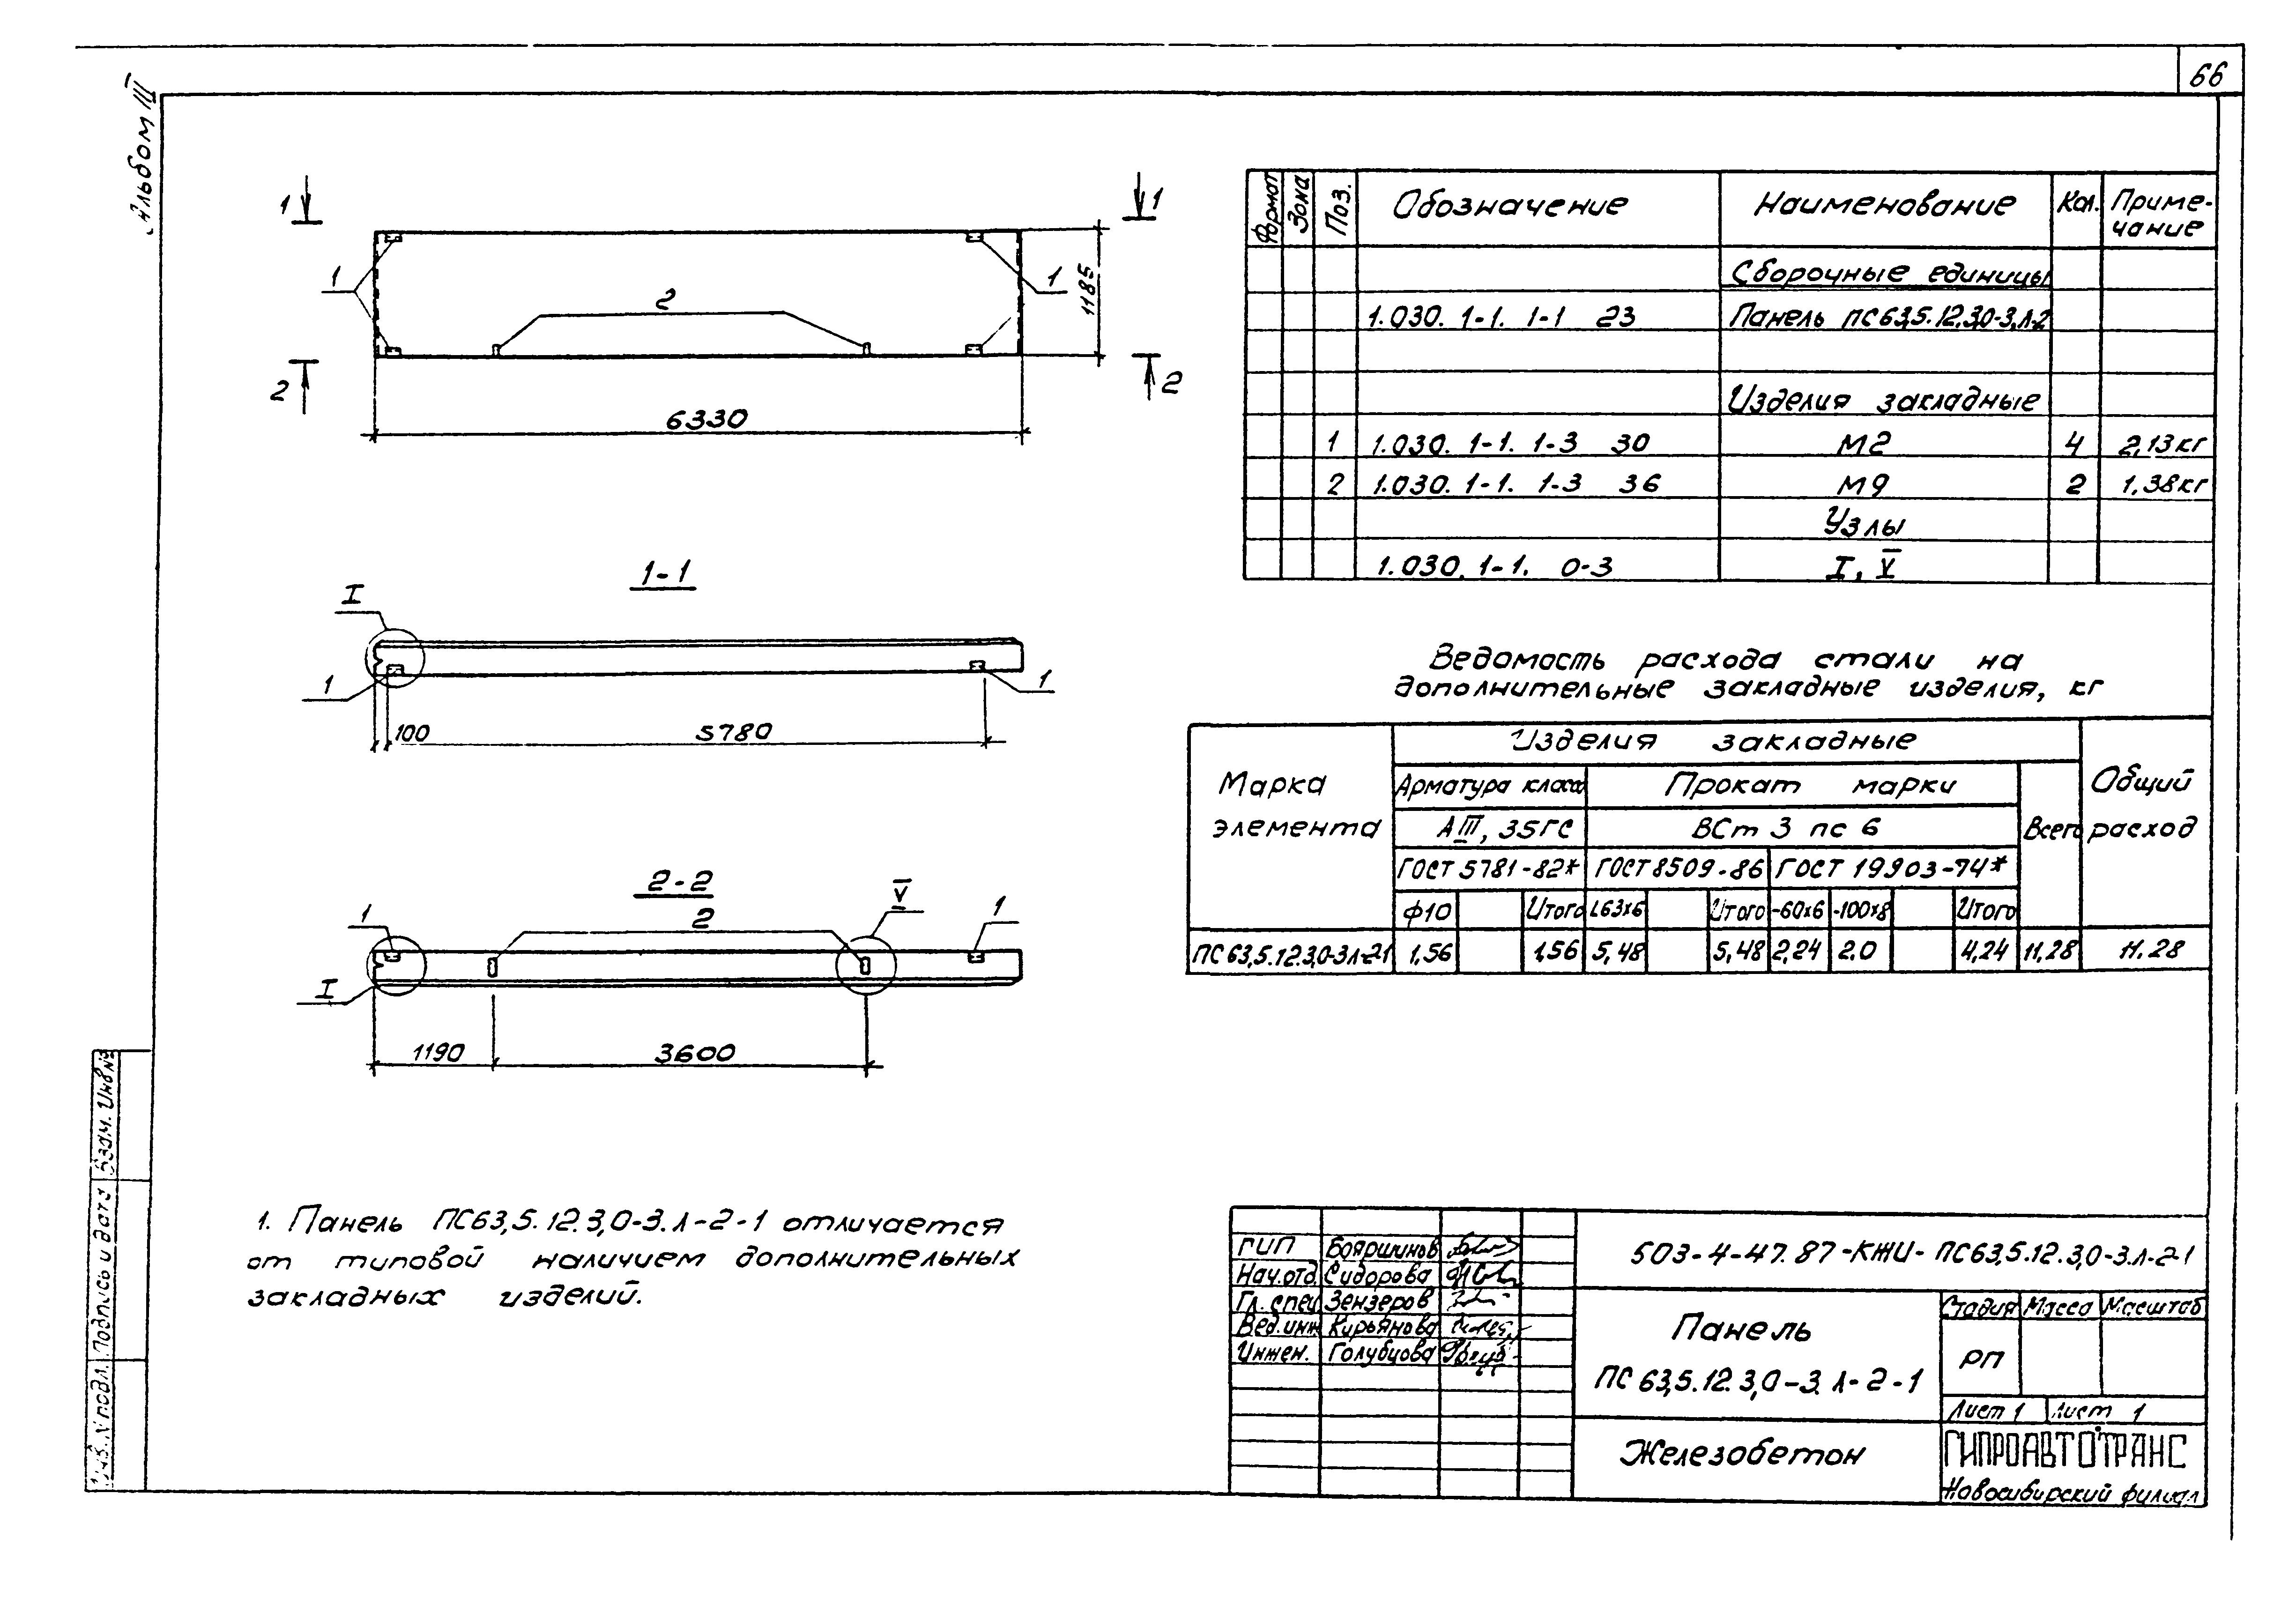 66
Альбом III
1 1
1 1
2
1185
2 2
6330
1-1
I
1 1
100 5780
2-2
V
1 2 1
I
1190 3600
1. Панель ПС63,5.12.3,0-3.Л-2-1 отличается
от типовой наличием дополнительных
закладных изделий.
Формат Зона Поз. Обозначение Наименование Кол. Приме-
чание
Сборочные единицы
1.030.1-1. 1-1 23 Панель ПС63,5.12.3,0-3.Л-2
Изделия закладные
1 1.030.1-1. 1-3 30 М2 4 2,13кг
2 1.030.1-1. 1-3 36 М9 2 1,38кг
Узлы
1.030.1-1. 0-3 I, V
Ведомость расхода стали на
дополнительные закладные изделия, кг
Марка
элемента
Изделия закладные
Общий
расход
Арматура класса Прокат марки
Всего
АIII, 35ГС ВСт 3 пс 6
ГОСТ 5781-82* ГОСТ 8509-86 ГОСТ 19903-74*
ф10 Итого L63х6 Итого -60х6 -100х8 Итого
ПС 63,5.12.3,0-3Л-2-1 1,56 1,56 5,48 5,48 2,24 2.0 4,24 11,28 11.28
503-4-47.87-КЖИ-ПС63,5.12.3,0-3.Л-2-1
ГИП Бояршинов
Нач.отд. Сидорова
Гл. спец Зензеров
Вед.инж Кирьянова
Инжен. Голубцова
Панель
ПС 63,5.12.3,0-3.Л-2-1
Стадия Масса Масштаб
РП
Лист 1 Лист 1
Железобетон
ГИПРОАВТОТРАНС
Новосибирский филиал
Взам. Инв№
Подпись и дата
Инв. № подл.